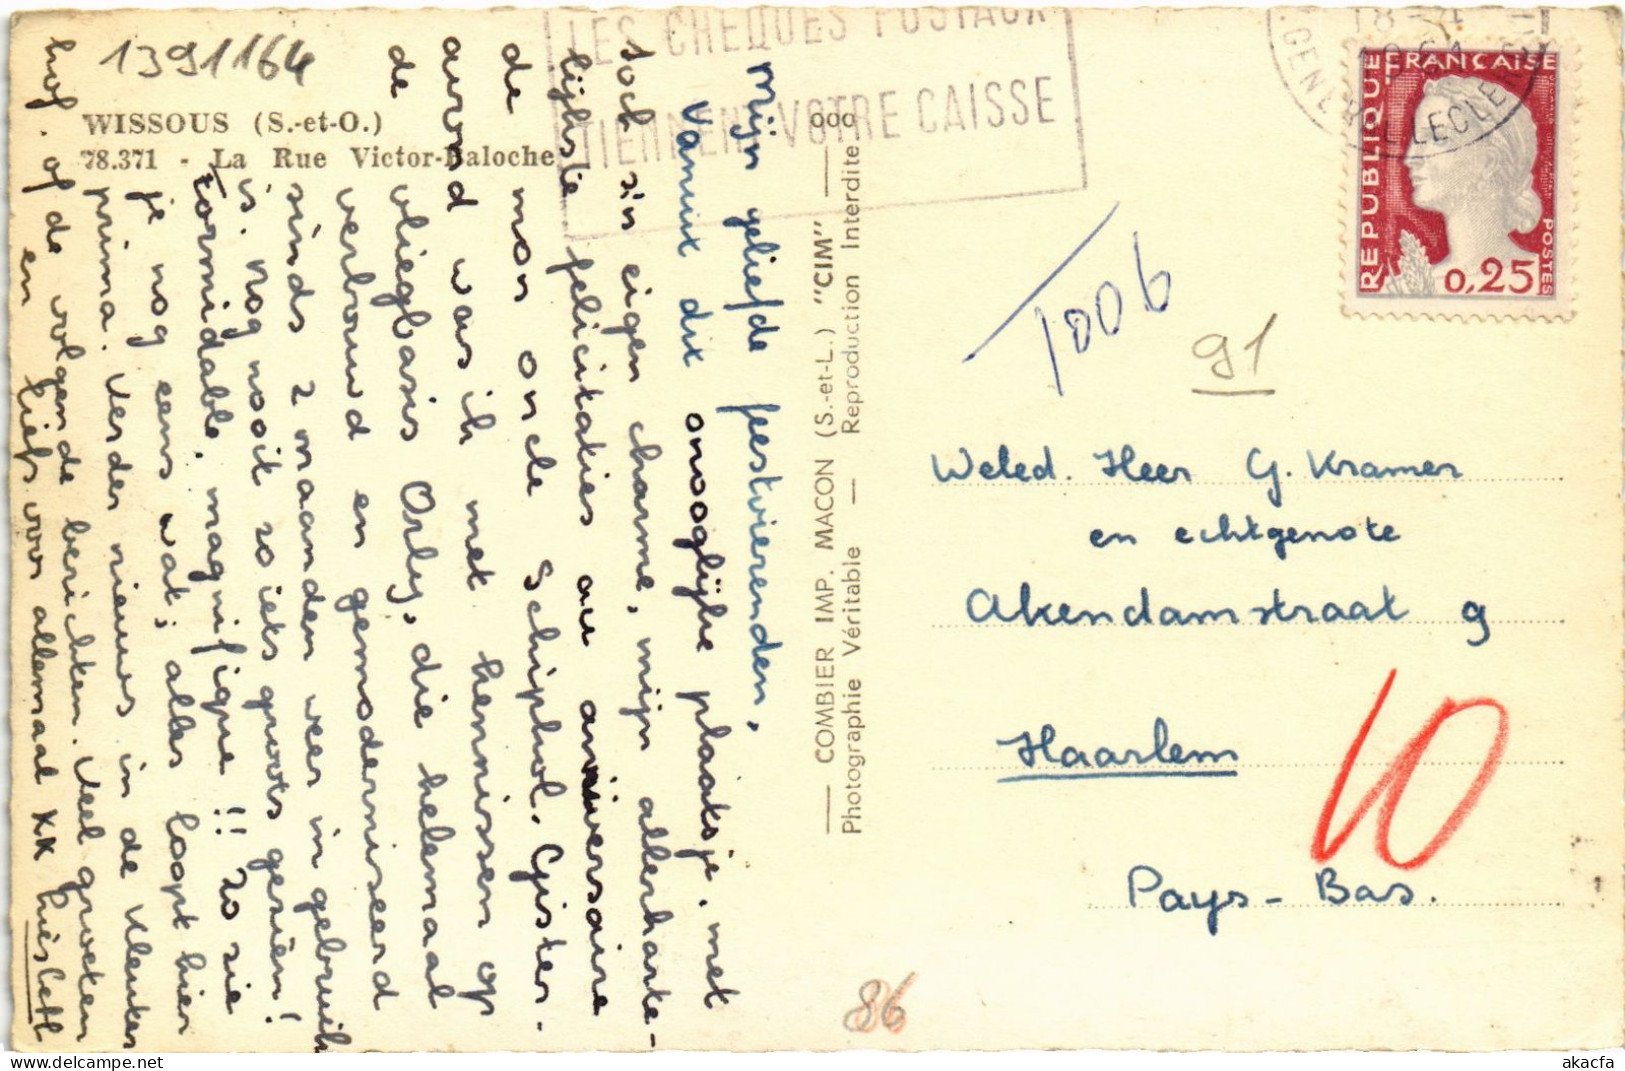 1391164
WISSOUS (S.-et-O.)
78.371 - La Rue Victor-Baloche
LES CHEQUES POSTAUX
TIENNENT VOTRE CAISSE
Mijn geliefde feestvierenden,
Vanuit dit onooglijke plaatsje, met
toch zijn eigen charme, mijn allerharte-
lijkste felicitaties au anniversaire
de mon oncle Schiphol. Gister
avond was ik met kennissen op
de vliegbasis Orly, die helemaal
verbouwd en gemoderniseerd
sinds 2 maanden weer in gebruik
is. Nog nooit zoiets groots gezien!
Formidable, magnifique!! Zo zie
je nog eens wat; alles loopt hier
prima. Verder nieuws in de
hof. of de volgende berichten. Veel groeten
en liefs voor allemaal XX
COMBIER IMP. MACON (S.-et-L.) "CIM"
Photographie Véritable — Reproduction Interdite
REPUBLIQUE FRANÇAISE
POSTES
0,25
T006
91
Weled. Heer G. Kramer
en echtgenote
Akendamstraat 9
Haarlem
Pays-Bas.
10
86
akacfa